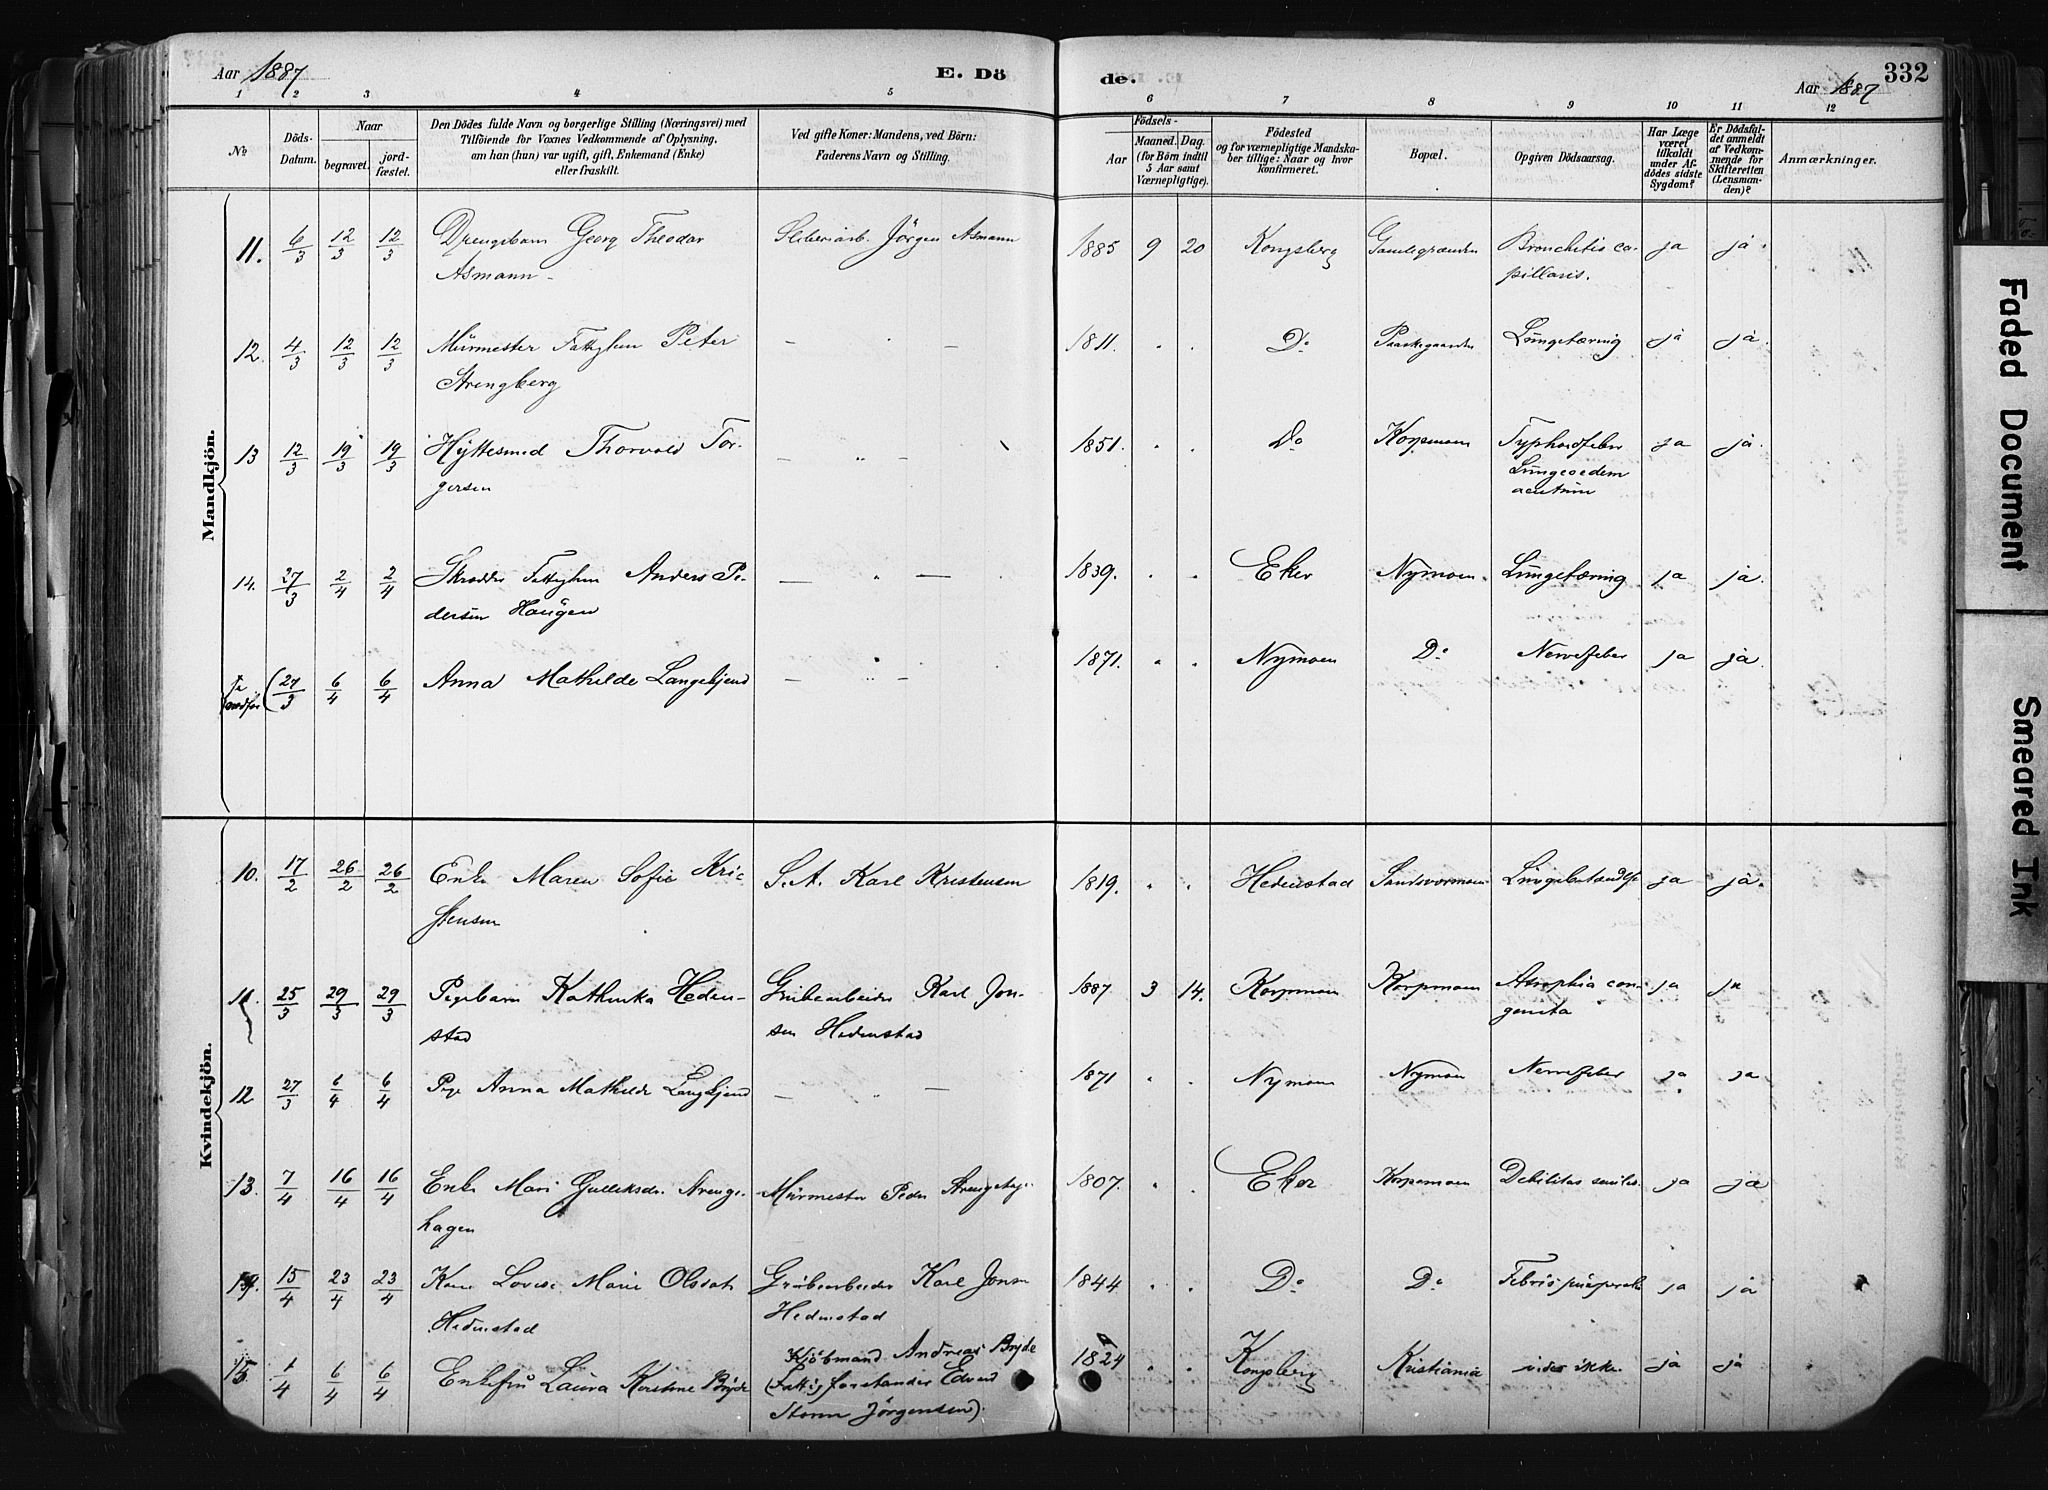 Aar 1887
E. Dö
de.
Aar 1887
332
1 2 3 4 5 6 7 8 9 10 11 12
No
Döds-Datum.
Naar
begravet.
jord-fæstet.
Den Dödes fulde Navn og borgerlige Stilling (Næringsvei) med
Tilföiende for Voxnes Vedkommende af Oplysning,
om han (hun) var ugift, gift, Enkemand (Enke)
eller fraskilt.
Ved gifte Koner: Mandens, ved Börn:
Faderens Navn og Stilling.
Födsels-
Aar
Maaned. Dag.
(for Börn indtil
5 Aar samt
Værnepligtige).
Födested
og for værnepligtige Mandska-
ber tillige: Naar og hvor
konfirmeret.
Bopæl.
Opgiven Dödsaarsag.
Har Læge
været
tilkaldt
under Af-
dödes sidste
Sygdom?
Er Dödsfal-
det anmeldt
af Vedkom-
mende for
Skifteretten
(Lensman-
den)?
Anmærkninger.
Mandkjön.
11. 6/3 12/3 12/3 Drengebarn Georg Theodor Jörgen Asmann 1885 9 20 Kongsberg Bronchitis ca- ja ja.
Asmann pillaris.
12. 4/3 12/3 12/3 Mürmester Peter 1811. D° Lüngetæring ja ja.
Strengberg
13 12/3 19/3 19/3 Hyttesmed Thorvald Tor- 1851. D° Korpemoen Typhoidfeber ja ja.
gersen Lüngeoedem
acutum
14. 27/3 2/4 2/4 Anders Pe- 1839. Eker Nymoen Lüngetæring ja ja.
dersen Haugen
(27/3 6/4 6/4 Anna Mathilde Langekjend 1871. Nymoen D° Nervefeber ja ja.
Kvindekjön.
10. 17/2 26/2 26/2 Enke Maren Sofie Kri- S. A. Karl Kristensen 1819. Hedenstad ja ja.
stensen
11. 25/3 29/3 29/3 Pigebarn Kathinka Heden- Grubearbeider Karl Jon- 1887 3 14. Korpemoen Korpemoen Atrophia con- ja ja
stad sen Hedenstad genita
12 27/3 6/4 6/4 Pige Anna Mathilde Langekjend 1871 Nymoen Nymoen Nervefeber ja ja
13. 7/4 16/4 16/4 Enke Mari Strenge- Mürmester Peder 1807. Eker Korpemoen Debilitas senilis. ja ja
hagen
14. 15/4 23/4 23/4 Kone Lovise Marie Olsdat. Grubearbeider Karl Jonsen 1844 D° D° Febris puerperalis ja ja
Hedenstad Hedenstad
Kjöbmand Andreas Bryde
15. 1/4 6/4 6/4 Enkefru Laura Kerstine Bryde (Fattigforstander Edvard 1824 Kongsberg Kristiania vides ikke. ja ja
Storm Jörgensen).
Faded Document
Smeared Ink